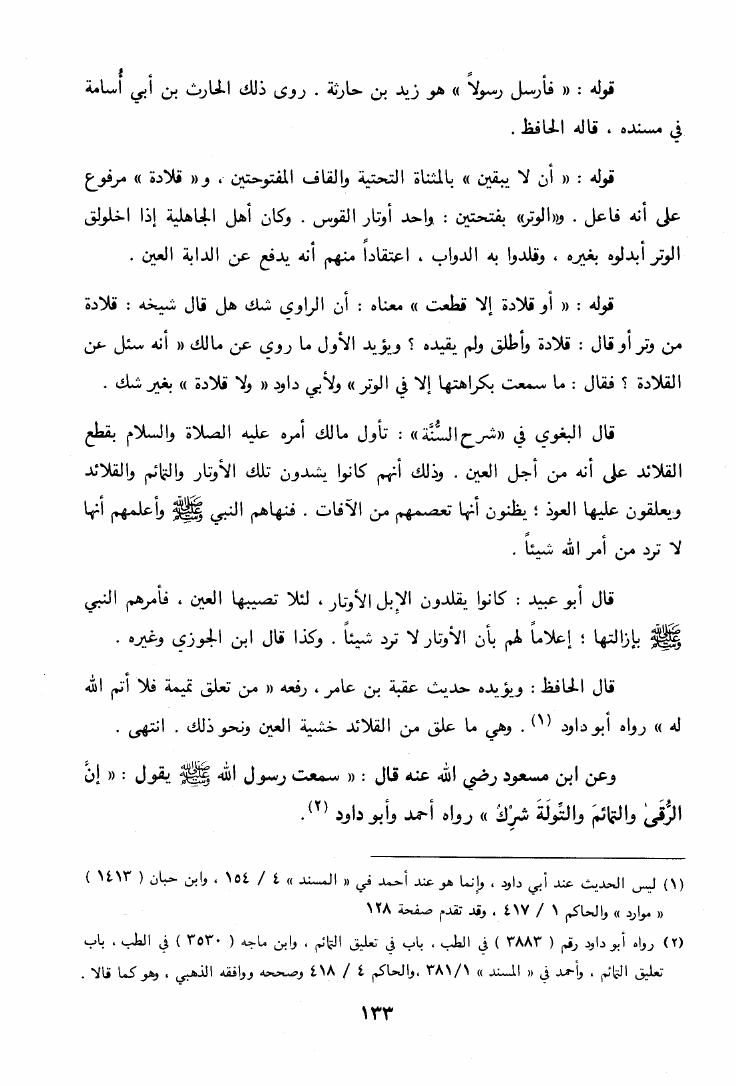 قوله : « فأرسل رسولاً » هو زيد بن حارثة . روى ذلك الحارث بن أبي أُسامة
في مسنده ، قاله الحافظ .
قوله : « أن لا يبقين » بالمثناة التحتية والقاف المفتوحتين ، و« قلادة » مرفوع
على أنه فاعل . و«الوتر» بفتحتين : واحد أوتار القوس . وكان أهل الجاهلية إذا اخلولق
الوتر أبدلوه بغيره ، وقلدوا به الدواب ، اعتقاداً منهم أنه يدفع عن الدابة العين .
قوله : « أو قلادة إلا قطعت » معناه : أن الراوي شك هل قال شيخه : قلادة
من وتر أو قال : قلادة وأطلق ولم يقيده ؟ ويؤيد الأول ما روي عن مالك « أنه سئل عن
القلادة ؟ فقال : ما سمعت بكراهتها إلا في الوتر » ولأبي داود « ولا قلادة » بغير شك .
قال البغوي في «شرح السُّنَّة» : تأول مالك أمره عليه الصلاة والسلام بقطع
القلائد على أنه من أجل العين . وذلك أنهم كانوا يشدون تلك الأوتار والتمائم والقلائد
ويعلقون عليها العوذ ؛ يظنون أنها تعصمهم من الآفات . فنهاهم النبي ﷺ وأعلمهم أنها
لا ترد من أمر الله شيئاً .
قال أبو عبيد : كانوا يقلدون الإبل الأوتار ، لئلا تصيبها العين ، فأمرهم النبي
ﷺ بإزالتها ؛ إعلاماً لهم بأن الأوتار لا ترد شيئاً . وكذا قال ابن الجوزي وغيره .
قال الحافظ : ويؤيده حديث عقبة بن عامر ، رفعه « من تعلق تميمة فلا أتم الله
له » رواه أبو داود (١) . وهي ما علق من القلائد خشية العين ونحو ذلك . انتهى .
وعن ابن مسعود رضي الله عنه قال : « سمعت رسول الله ﷺ يقول : « إنَّ
الرُّقَىٰ والتمائمَ والتِّولَةَ شركٌ » رواه أحمد وأبو داود (٢) .
(١) ليس الحديث عند أبي داود ، وإنما هو عند أحمد في « المسند » ٤ / ١٥٤ ، وابن حبان ( ١٤١٣ )
« موارد » والحاكم ١ / ٤١٧ ، وقد تقدم صفحة ١٢٨
(٢) رواه أبو داود رقم ( ٣٨٨٣ ) في الطب ، باب في تعليق التمائم ، وابن ماجه ( ٣٥٣٠ ) في الطب ، باب
تعليق التمائم ، وأحمد في « المسند » ٣٨١/١ ،والحاكم ٤ / ٤١٨ وصححه ووافقه الذهبي ، وهو كما قالا .
١٣٣